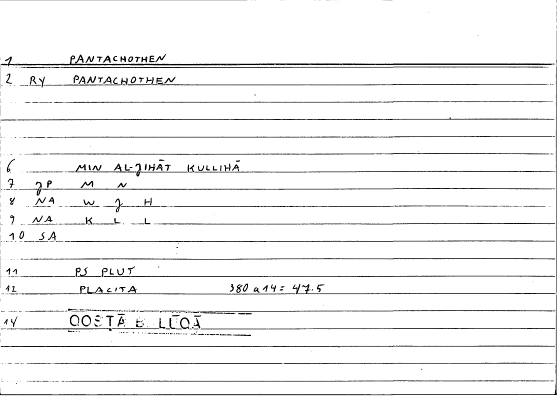 1 PANTACHOTHEN
2 RY PANTACHOTHEN
6 MIN AL-JIHĀT KULLIHĀ
7 JP M N
8 NA W J H
9 NA K L L
10 SA
11 PS PLUT
12 PLACITA 380 a 14 = 47.5
14 QOSṬĀ B. LŪQĀ